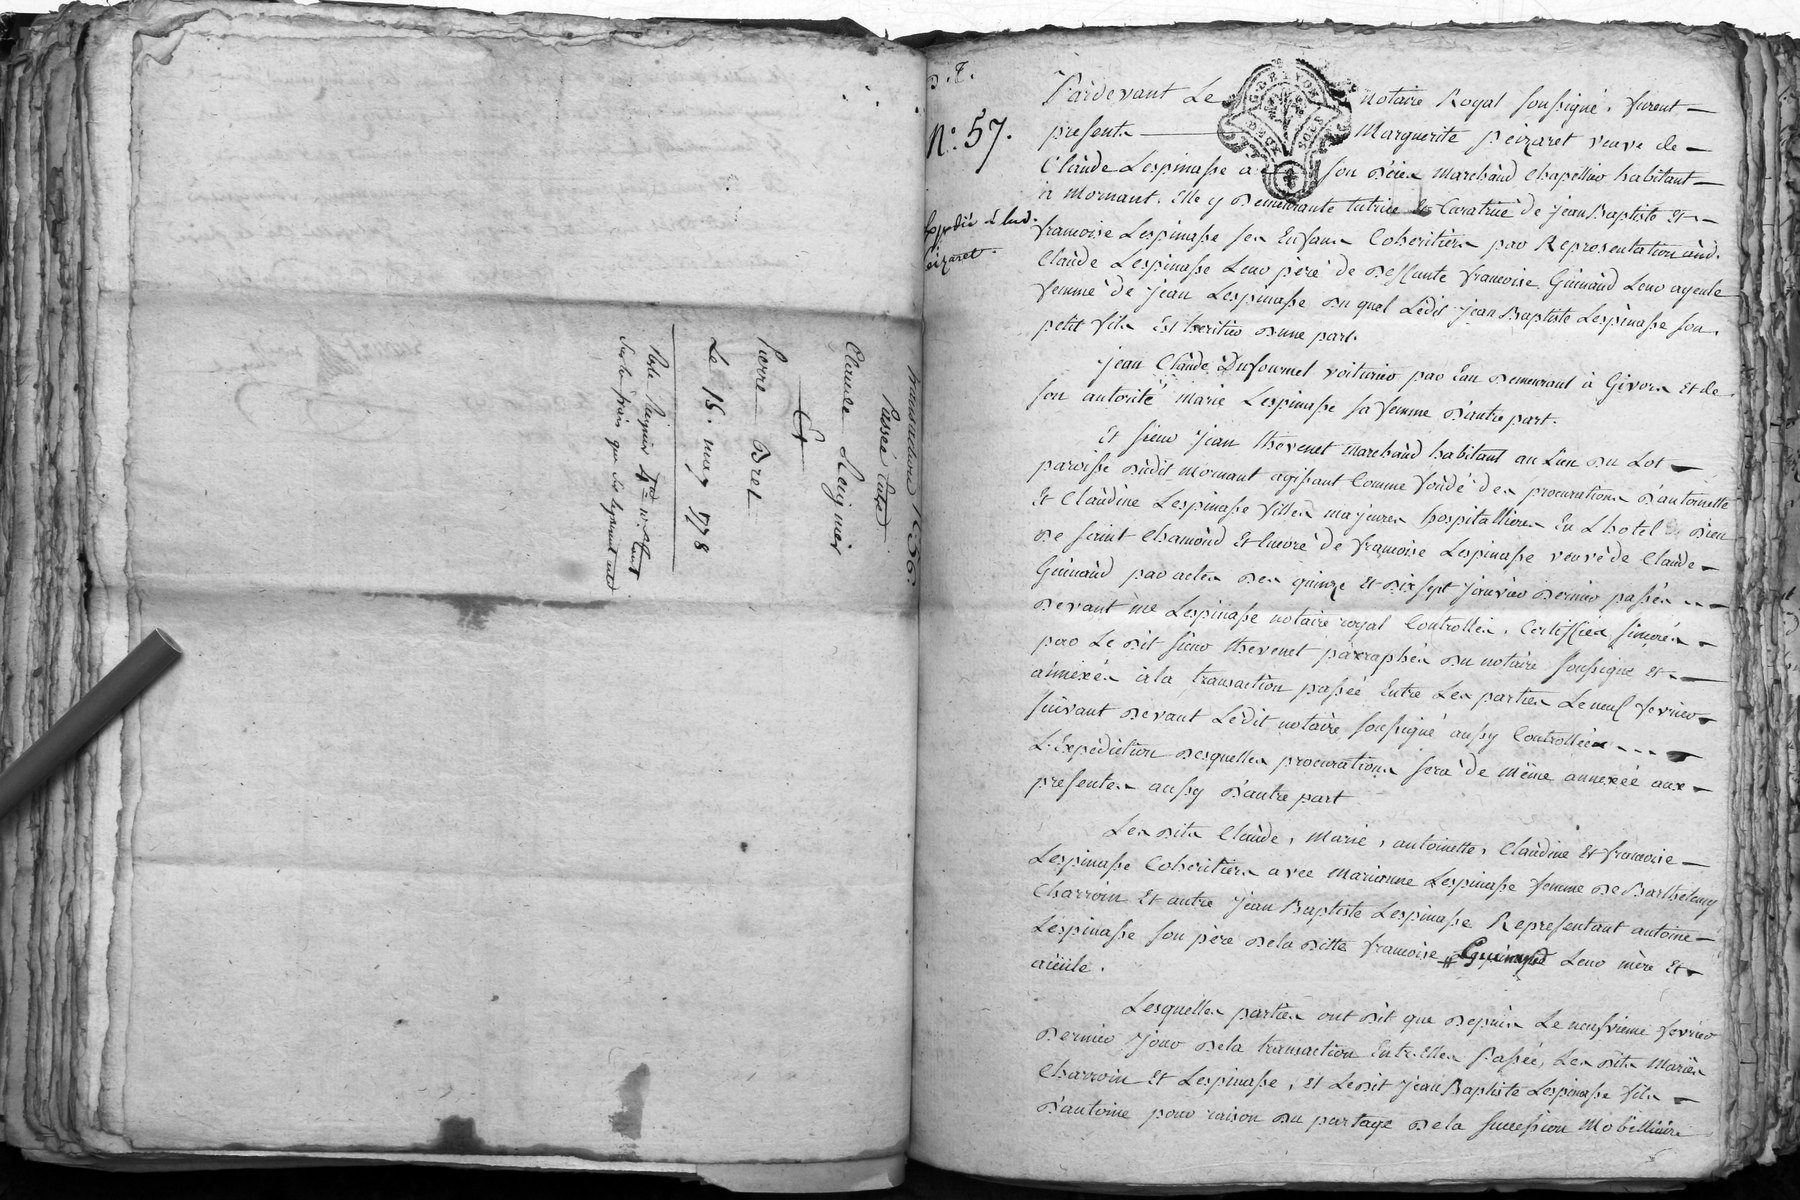 transaction
Passé Entre
Claude Leuynier
Et
Pierre Bret
Le 15. may 1778
D. T.
N.º 57.
Expedié à lad.
peizaret.
Pardevant Le notaire Royal soussigné, furent
presents Marguerite peizaret veuve de
Claude Lespinasse à son vivant marchand chapellier habitant
à Mornant. Elle y Demeurante tutrice et Curatrice de Jean Baptiste Et
francoise Lespinasse ses Enfans Coheritiers par Representation dud.
Claude Lespinasse Leur père de Deffunte francoise Guinand Leur ayeule
femme de Jean Lespinasse Du quel Ledit Jean Baptiste Lespinasse son
petit fils Est heritier D'une part.
Jean Claude Dufournel voiturier par Eau Demeurant à Givors Et de
son autorité marie Lespinasse sa femme D'autre part.
Et sieur Jean thevenet marchand habitant au Lieu Du Lot
paroisse Dudit mornant agissant Comme fondé des procurations D'antoinette
Et Claudine Lespinasse filles majeures hospitallieres En L'hotel Dieu
De saint Chamond Et Encore de francoise Lespinasse veuve de Claude
Guinand par actes Des quinze Et Dix sept Janvier Dernier passés
Devant me Lespinasse notaire royal Controllés, Certiffiés sincères
par Le Dit sieur thevenet paraphés Du notaire soussigné Et
annexés à la transaction passée Entre Les parties Le neuf fevrier
suivant Devant Ledit notaire soussigné aussy Controllée
L'Expédition Desquelles procurations sera de même annexée aux
presentes aussy D'autre part
Les Dits Claude, Marie, antoinette, Claudine Et francoise
Lespinasse Coheritiers avec Marianne Lespinasse femme De Barthelemy
Charroin Et autre Jean Baptiste Lespinasse Representant antoine
Lespinasse son père De la Ditte francoise Guinand Leur mère Et
aïeule.
Lesquelles parties ont Dit que Depuis Le neufvieme fevrier
Dernier Jour De la transaction Entr'Elles Passée, Les Dits Mariés
Charroin Et Lespinasse, Et Ledit Jean Baptiste Lespinasse fils
D'antoine pour raison Du partage De la succession Mobilliaire